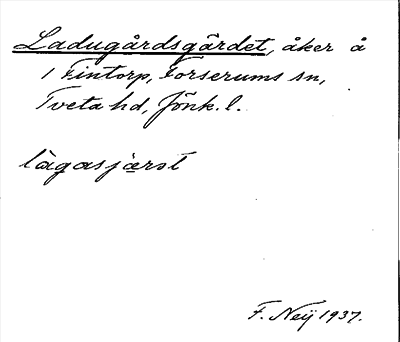 Ladugårdsgärdet, åker å
1 Fintorp, Forserums sn,
Tveta hd, Jönk. l.
làgasjærst
F. Neij 1937.